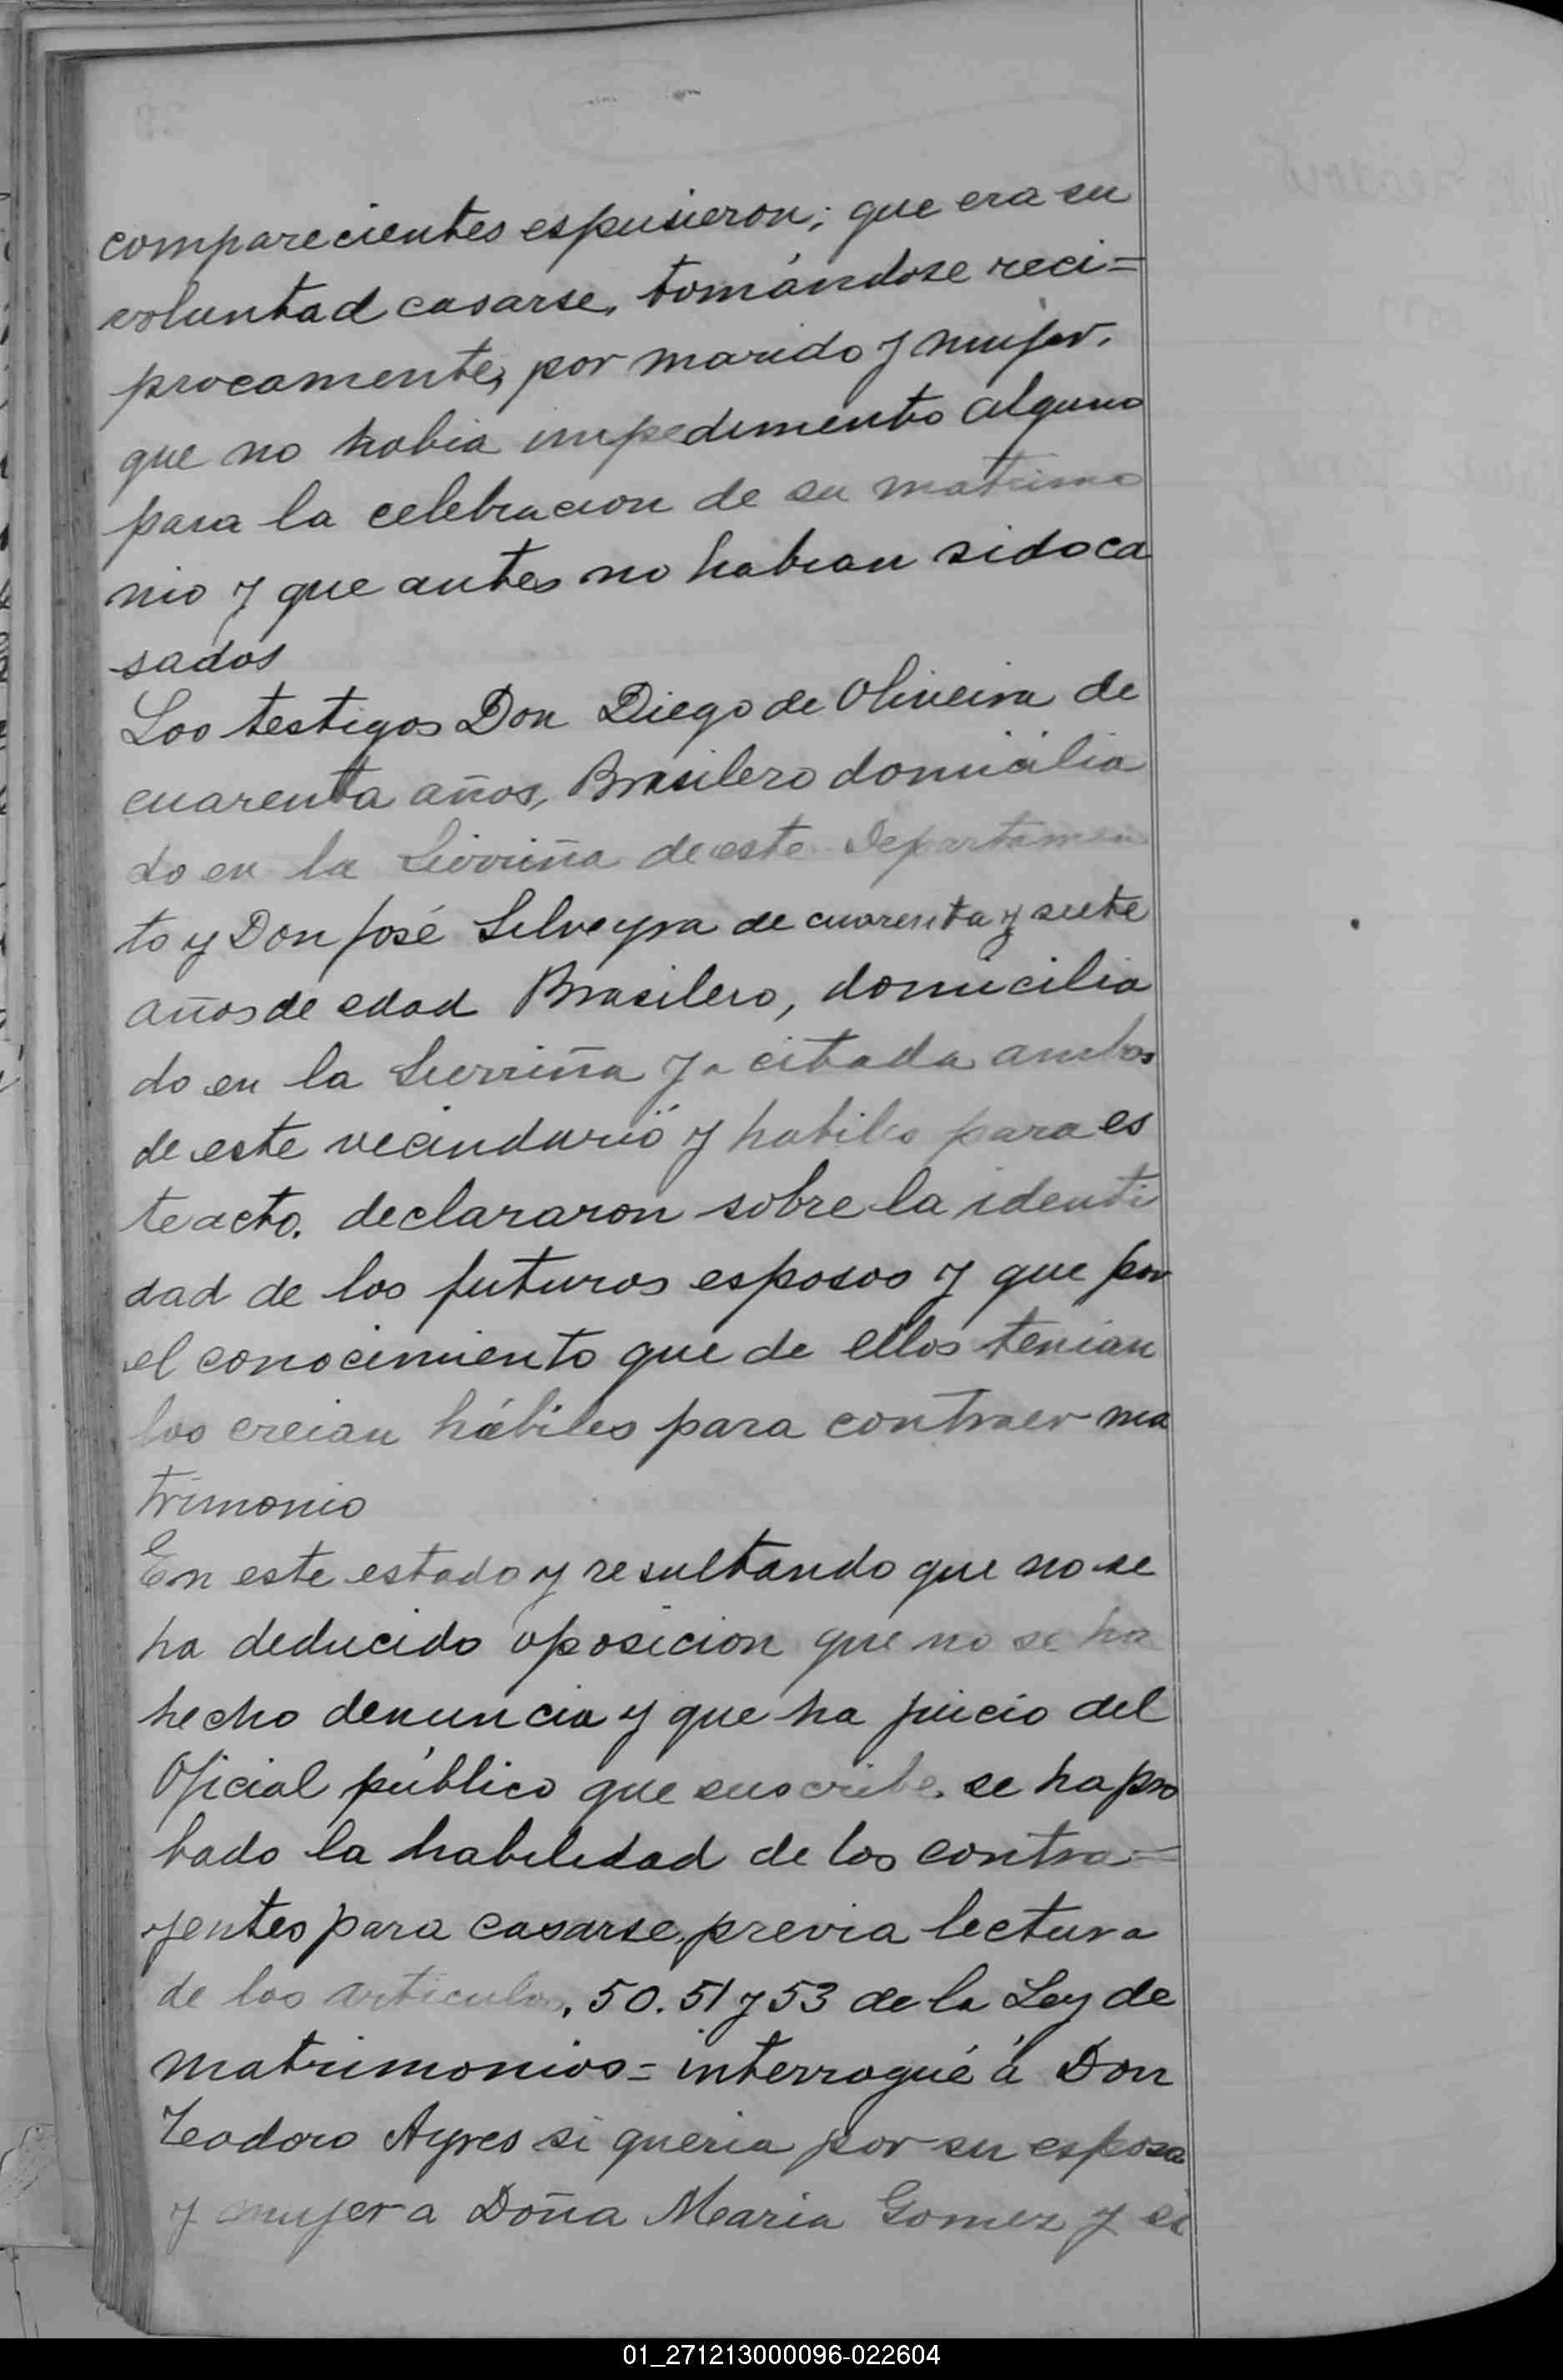 comparecientes espusieron; que era su
voluntad casarse, tomándose reci=
procamente, por marido y mujer.
que no habia impedimento alguno
para la celebracion de su matrimo
nio y que antes no habian sido ca
sados
Los testigos Don Diego de Oliveira de
cuarenta años, Brasilero domicilia
do en la de este Departamen
to y Don José Silveyra de cuarenta y siete
años de edad Brasilero, domicilia
do en la ya citada ambos
de este vecindario y habiles para es
te acto. declararon sobre la identi
dad de los futuros esposos y que por
el conocimiento que de ellos tenian
los creian hábiles para contraer ma
trimonio
En este estado y resultando que no se
ha deducido oposicion que no se ha
hecho denuncia y que ha juicio del
Oficial público que suscribe. se ha pro
bado la habilidad de los contra=
yentes para casarse, previa lectura
de los articulos, 50. 51 y 53 de la Ley de
matrimonios = interrogué á Don
Teodoro Ayres si queria por su esposa
y mujer a Doña Maria Gomez y si
01_271213000096-022604